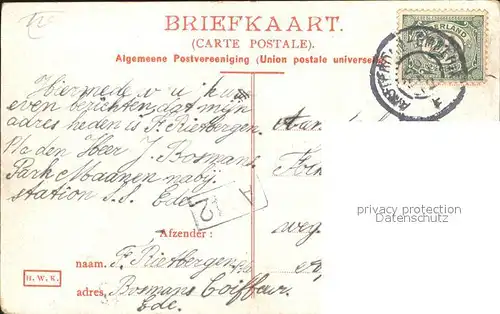 BRIEFKAART.
(CARTE POSTALE).
Algemeene Postvereeniging (Union postale universelle)
Hiermede u kun
even berichten dat mijn
adres heden is F. Rietbergen
p/a den Heer J. Bosmans
Park Maanen nabij
station S.S. Ede
A
12
Afzender:
naam. F. Rietbergen p/a
adres, Bosmans Coiffeur
Ede.
H.W.K.
Aan
weg
privacy protection
Datenschutz